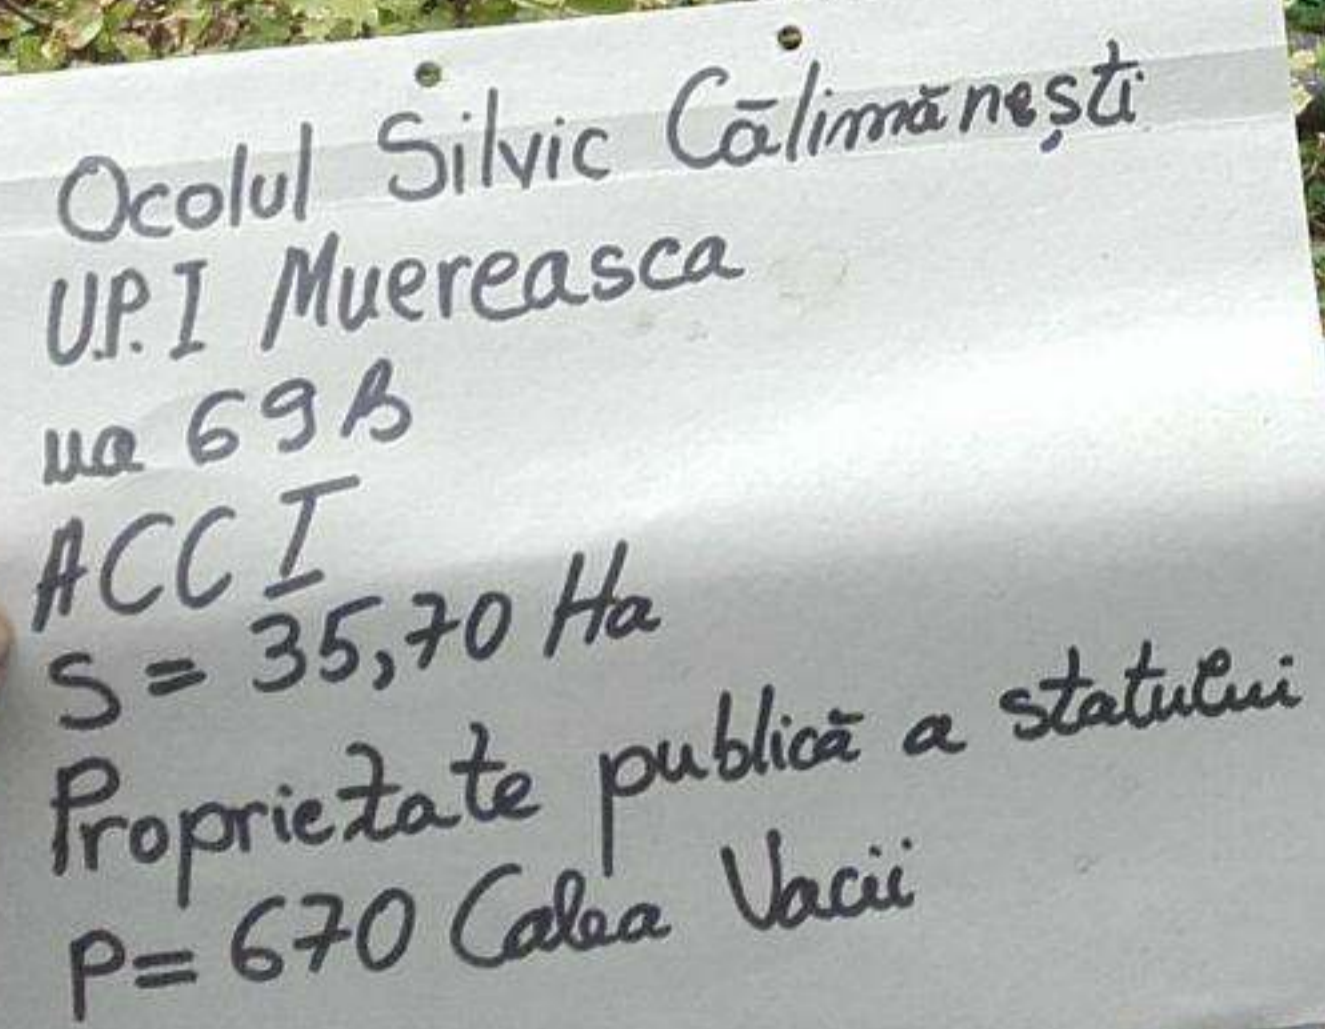 Ocolul Silvic Călimănești
U.P. I Muereasca
ua 69 B
ACC I
S = 35,70 Ha
Proprietate publică a statului
P= 670 Calea Vacii